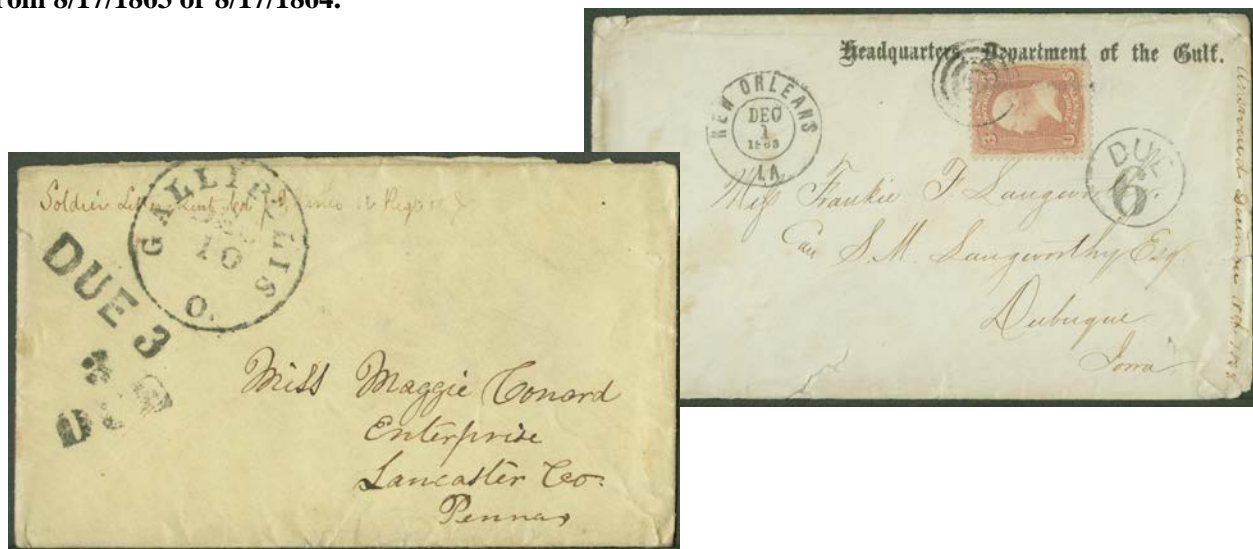 rom 8/17/1863 or 8/17/1864.
Headquarters, Department of the Gulf.
NEW ORLEANS
DEC
1
1863
LA.
DUE
6
Miss Frankie F. Langworthy
Care S. M. Langworthy Esq.
Dubuque
Iowa
Soldier
GALLIPOLIS
10
O.
DUE 3
Miss Maggie Conard
Enterprise
Lancaster Co.
Penna